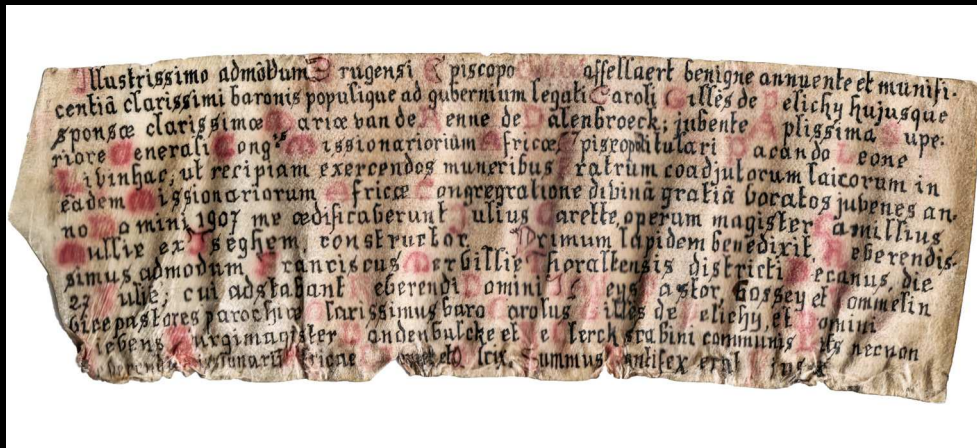 Illustrissimo admôdum Brugensi Episcopo affellaert benigne annuente et munifi-
centiâ clarissimi baronis populique ad gubernium legati Caroli Gilles de Pelichy hujusque
sponsæ clarissimæ Mariæ van de Venne de Dalenbroeck; jubente Aplissima Supe-
riore Generali Congnis Missionariorium Africæ, Episcopo titulari Pacando Leone
Livinhac; ut recipiam exercendos muneribus Fratrum coadjutorum laicorum in
eadem Missionariorum Africæ Congregratione divinâ gratiâ vocatos juvenes an-
no Domini 1907 me ædificaberunt Julius Carette, operum magister Camillius
Mullie ex Iseghem, constructor. Primum lapidem benedixit, Reverendis-
simus admodum Franciscus Mervillie Thoraltensis districti Decanus, die
27 Julie; cui adstabant Reverendi Domini Neys Pastor, Gossey et Ommeslin
vicepastores parochiæ Clarissimus baro Carolus Gilles de Pelichy, et Domini
Lievens Burgimagister Vandenbulcke et De Clerck scabini communis necnon
Summus Pontifex erat